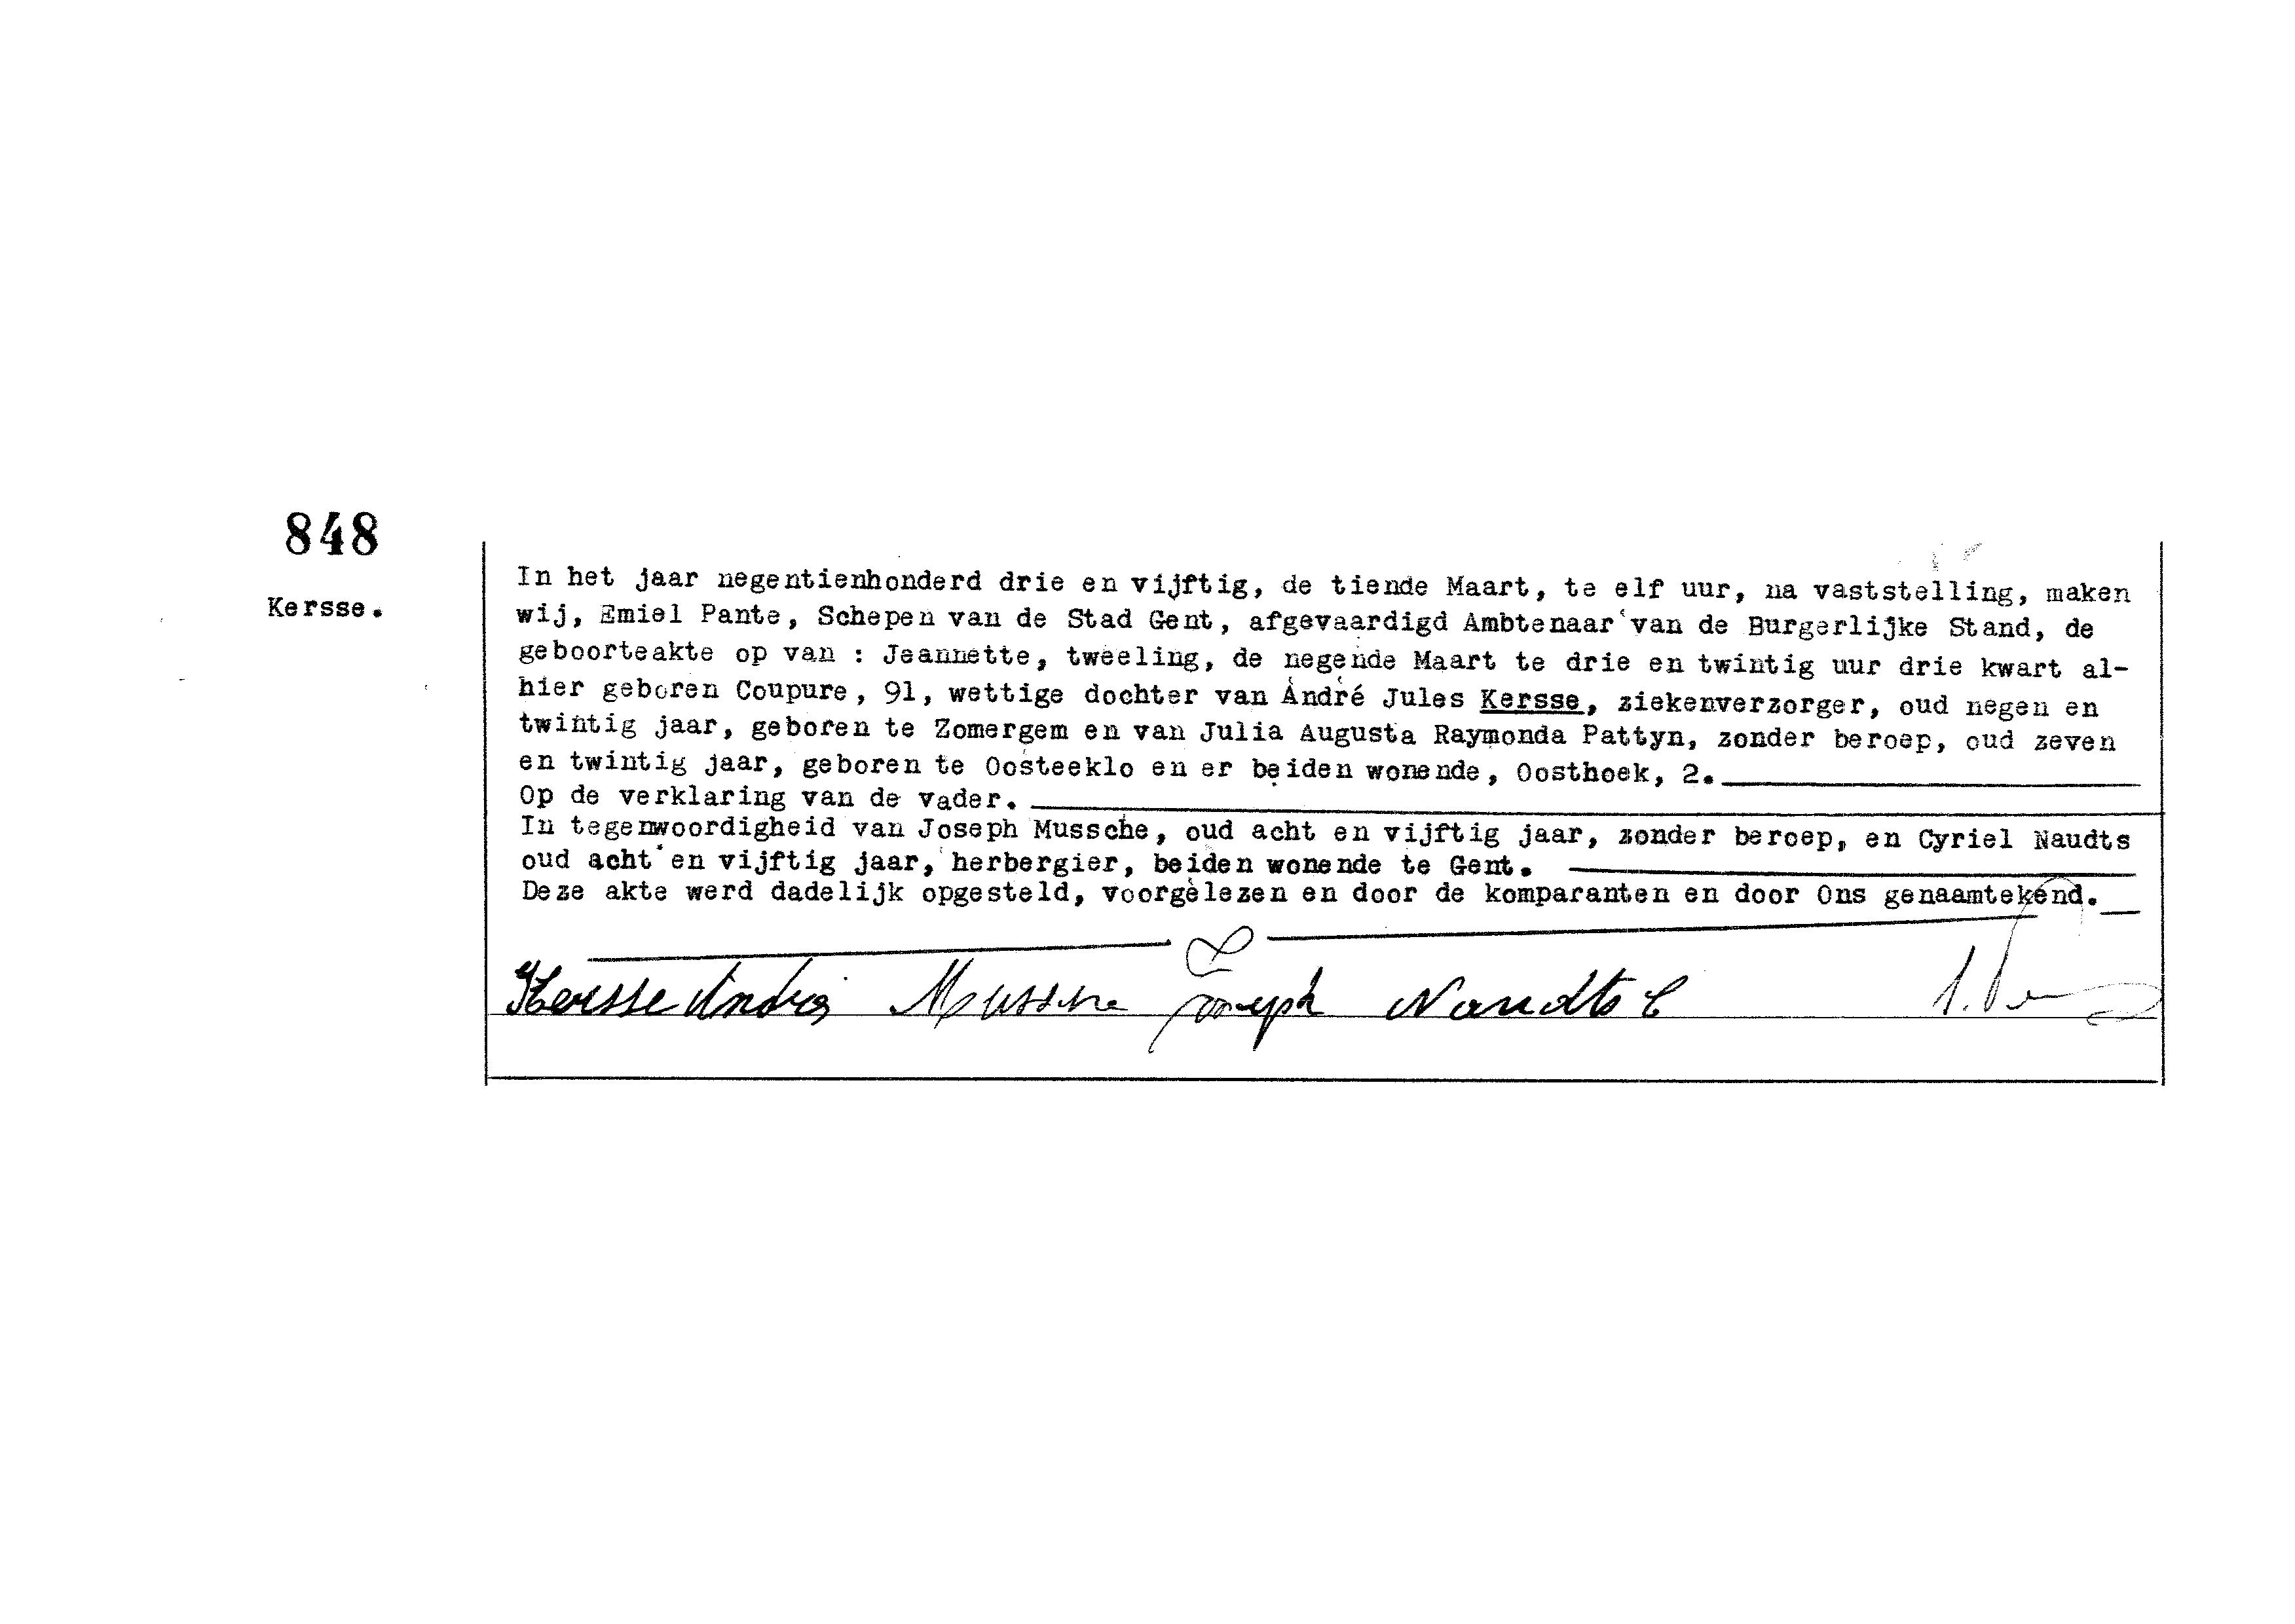 848
Kersse.
In het jaar negentienhonderd drie en vijftig, de tiende Maart, te elf uur, na vaststelling, maken
wij, Emiel Pante, Schepen van de Stad Gent, afgevaardigd Ambtenaar van de Burgerlijke Stand, de
geboorteakte op van : Jeannette, tweeling, de negende Maart te drie en twintig uur drie kwart al-
hier geboren Coupure, 91, wettige dochter van André Jules Kersse, ziekenverzorger, oud negen en
twintig jaar, geboren te Zomergem en van Julia Augusta Raymonda Pattyn, zonder beroep, oud zeven
en twintig jaar, geboren te Oosteeklo en er beiden wonende, Oosthoek, 2.
Op de verklaring van de vader.
In tegenwoordigheid van Joseph Mussche, oud acht en vijftig jaar, zonder beroep, en Cyriel Naudts
oud acht en vijftig jaar, herbergier, beiden wonende te Gent.
Deze akte werd dadelijk opgesteld, voorgelezen en door de komparanten en door Ons genaamtekend.
Kersse André Mussche Joseph Naudts C